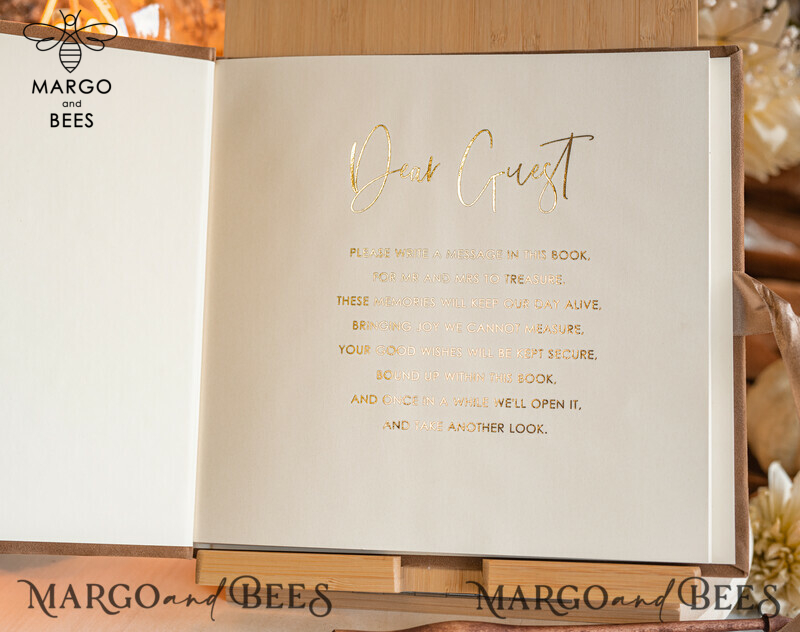 MARGO
and
BEES
Dear Guest
PLEASE WRITE A MESSAGE IN THIS BOOK,
FOR MR AND MRS TO TREASURE.
THESE MEMORIES WILL KEEP OUR DAY ALIVE,
BRINGING JOY WE CANNOT MEASURE,
YOUR GOOD WISHES WILL BE KEPT SECURE,
BOUND UP WITHIN THIS BOOK,
AND ONCE IN A WHILE WE'LL OPEN IT,
AND TAKE ANOTHER LOOK.
MARGO and BEES
MARGO and BEES